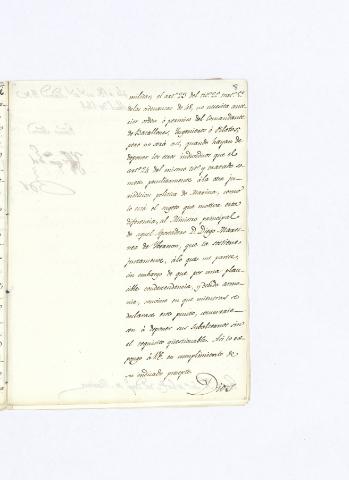 8
militar, el artº 23 del titº 2º trat.º
de las ordenanzas de 48, no necesita
orden ó permiso del Comandante
de Batallones, Ingeniero ó Pilotos,
pero no será así, quando hayan de
deponer los otros individuos que el
artº 24 del mismo titº y tratado so-
mete peculiarmente á la otra ju-
risdiccion politica de Marina, como
lo está el sugeto que motiva esta
diferencia, al Ministro principal
de aquel Apostadero D. Diego Marti-
nez de Viranon, que lo sostiene
justamente, á lo que me parece,
sin embargo de que por una plau-
sible condescendencia, y debida armo-
nia, convino en que mientras se
declarase este punto, concurrie-
sen á deponer sus subalternos sin
el requisito questionable. Asi lo ex-
pongo á VE. en cumplimiento de
su indicado precepto.
Dios